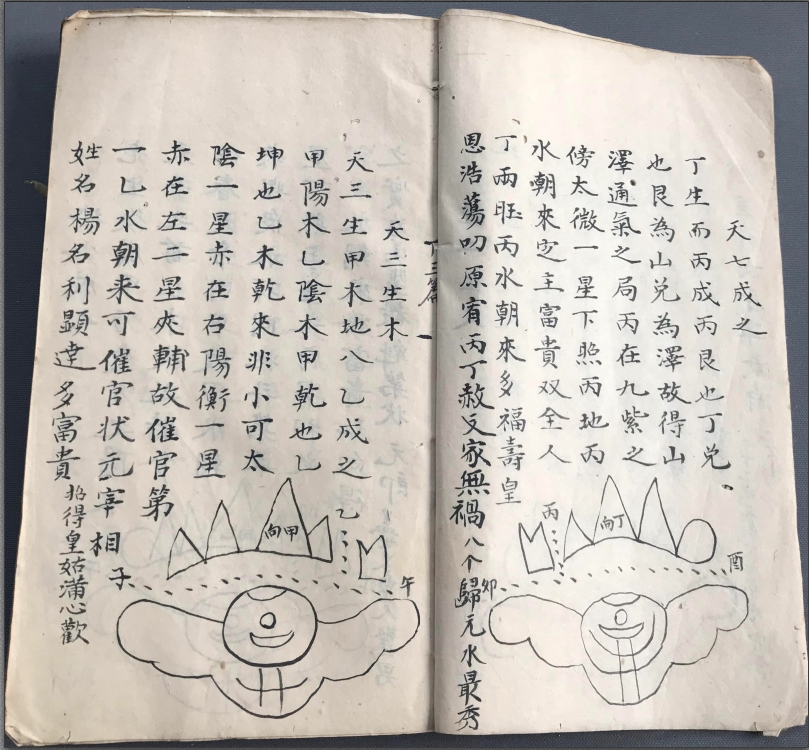 天七成之
丁生而丙成丙艮也丁兑
也艮為山兑為澤故得山
澤通氣之局丙在九紫之
傍太微一星下照丙地丙
水朝來定主富貴双全人
丁兩旺丙水朝來多福壽皇
恩浩蕩叨原宥丙丁赦文家無禍八个歸元水最秀
丙
向丁
酉
卯
天三生木
天三生甲木地八乙成之
甲陽木乙陰木甲乾也乙
坤也乙木乾來非小可太
陰一星赤在右陽衡一星
赤在左二星夾輔故催官第
一乙水朝来可催官状元宰相
姓名楊名利顯達多富貴招得皇姑滿心歡
乙
向甲
午
子